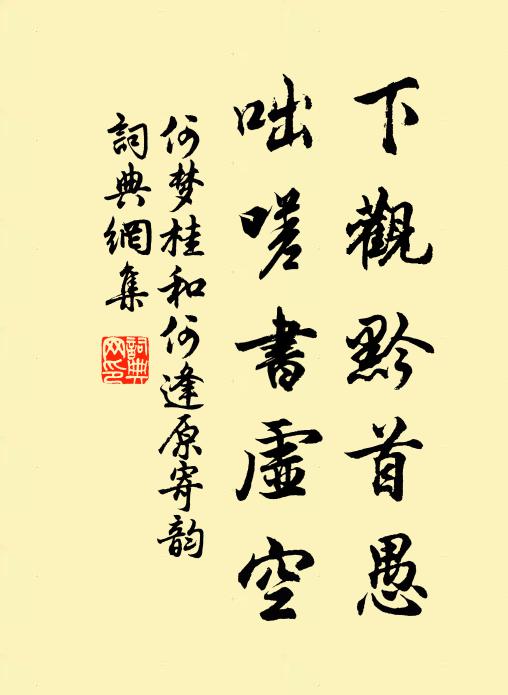 下觀黔首愚
咄嗟書虛空
何梦桂和何逢原寄韵
詞典網集
詞典网印